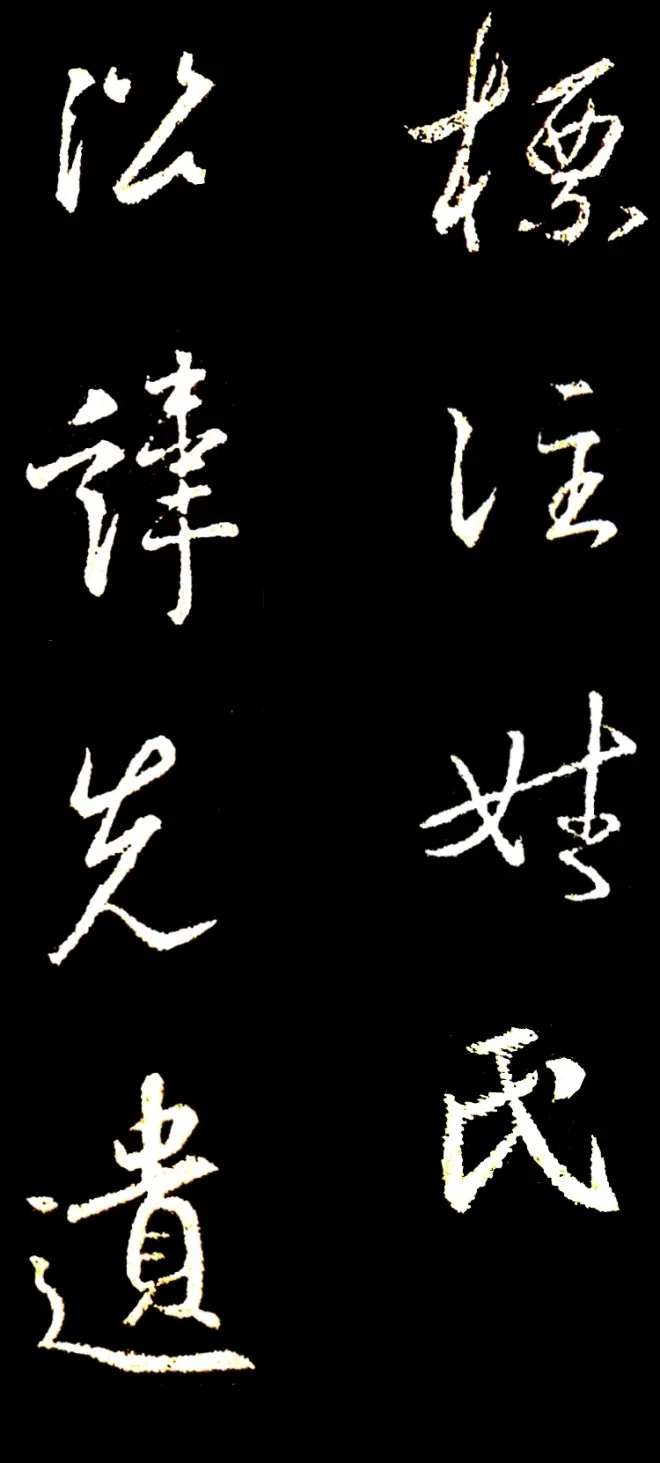 標注姓氏
沿諱先遺